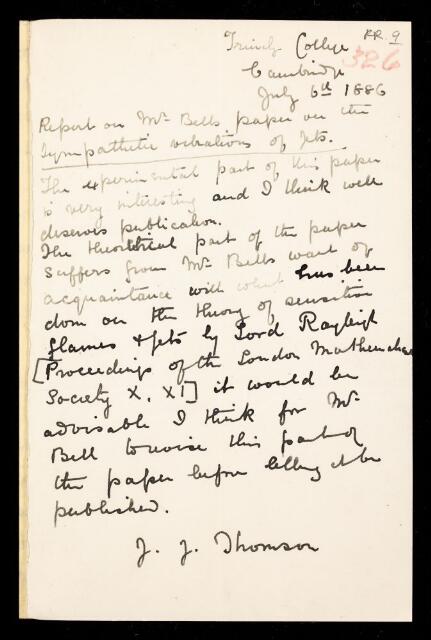 RR. 9
326
Trinity College
Cambridge
July 6th 1886
Report on Mr Bells paper on the
Sympathetic vibrations of Jets.
The experimental part of this paper
is very interesting and I think well
deserves publication.
The theoretical part of the paper
suffers from Mr Bells want of
acquaintance with what has been
done on the theory of sensitive
flames & jets by Lord Rayleigh
[Proceedings of the London Mathematical
Society X, XI] it would be
advisable I think for Mr
Bell to revise this part of
the paper before letting it be
published.
J. J. Thomson